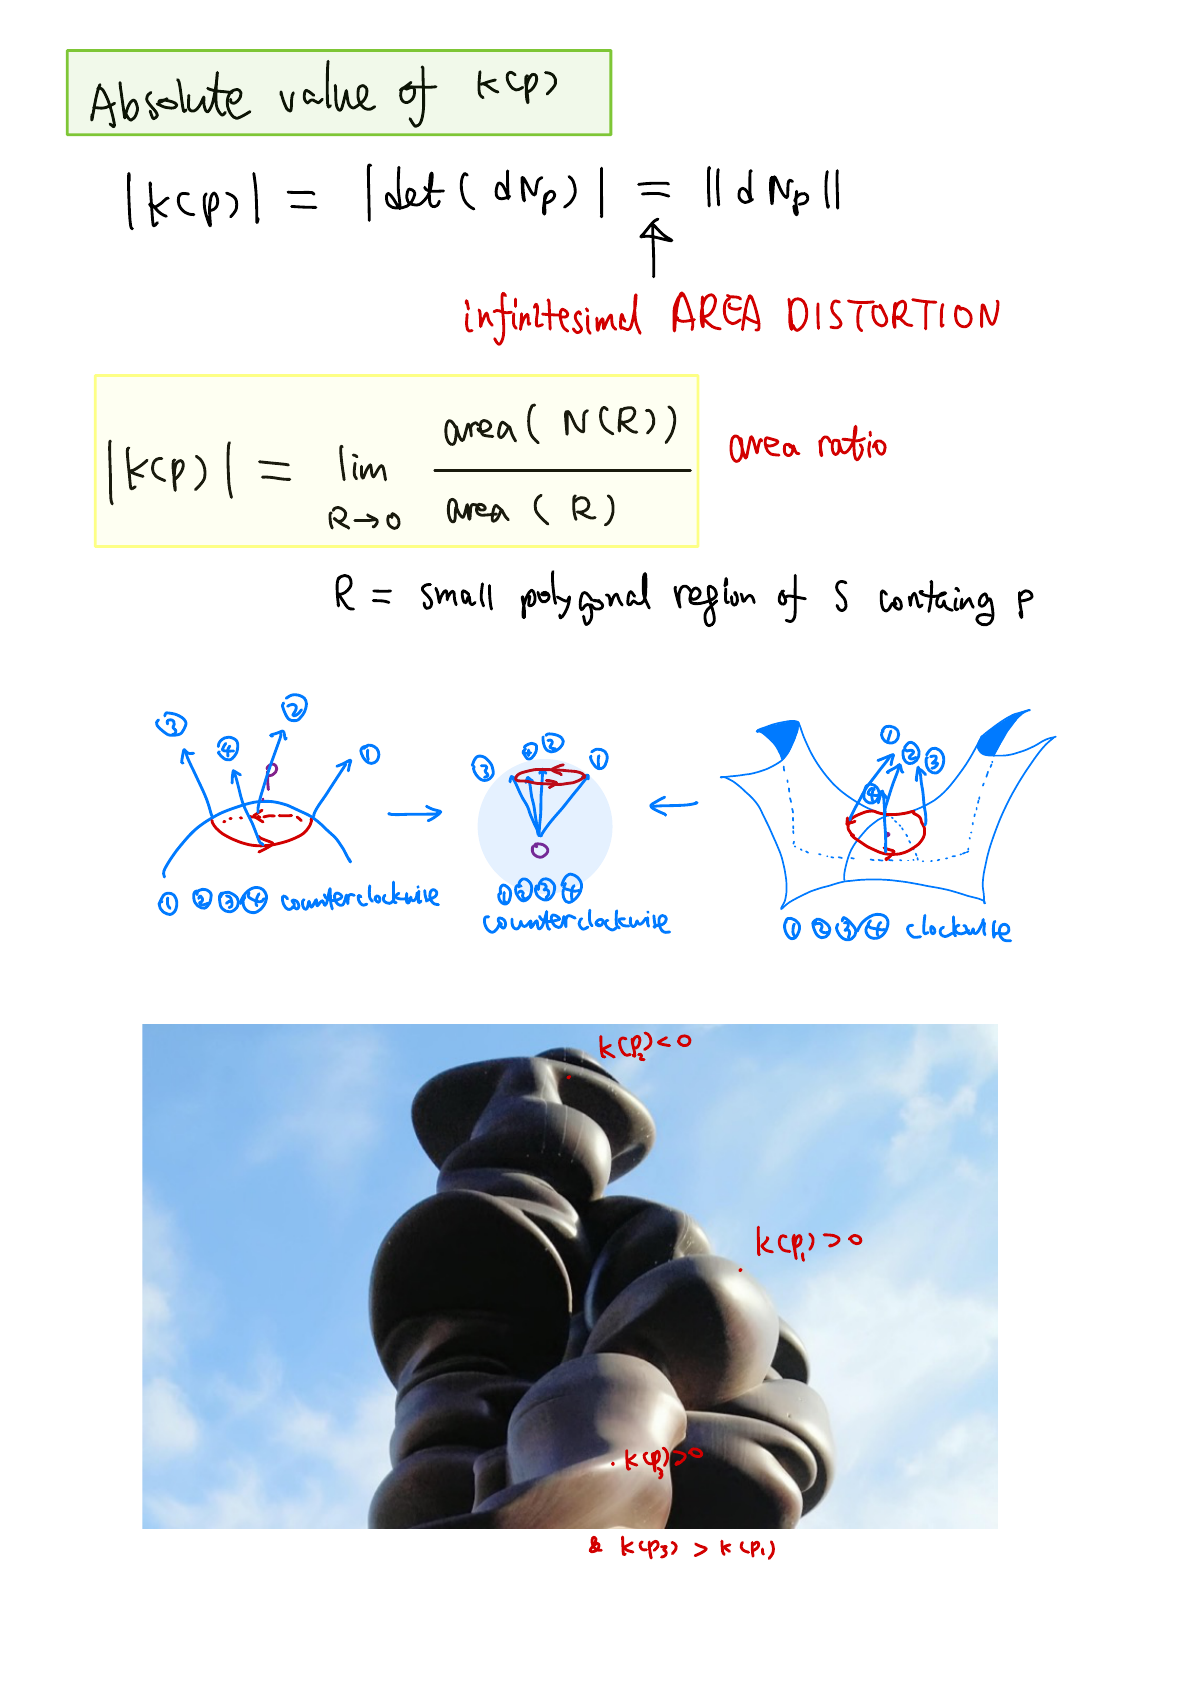 Absolute value of K(p)
|K(p)| = |det(dNp)| = ||dNp||
↑
infinitesimal AREA DISTORTION
|K(p)| = lim R→0 area(N(R)) / area(R)
area ratio
R = small polygonal region of S containg p
③ ④ ② p ①
③ ④ ② ①
① ② ③ ④
① ② ③ ④ counterclockwise
① ② ③ ④
counterclockwise
① ② ③ ④ clockwise
K(p₂) < 0
K(p₁) > 0
K(p₃) > 0
& K(p₃) > K(p₁)